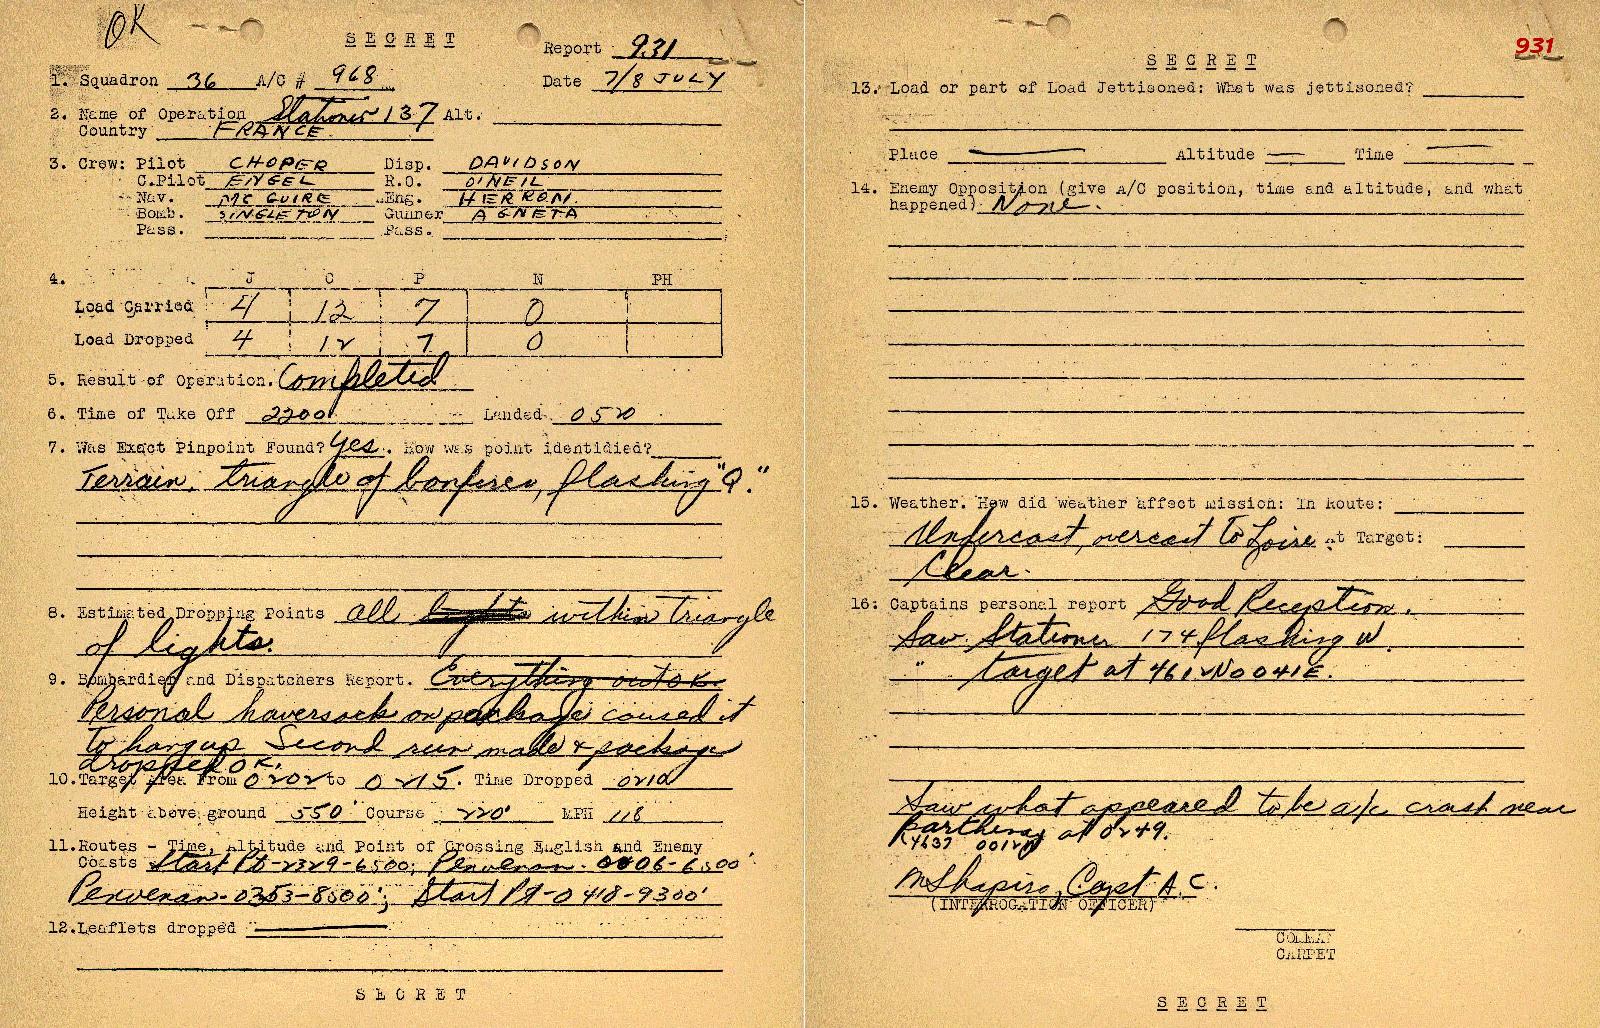 OK
SECRET
Report 931
1. Squadron 36 A/C # 968 Date 7/8 JULY
2. Name of Operation Stationer 137 Alt.
Country FRANCE
3. Crew: Pilot CHOPER Disp. DAVIDSON
C.Pilot ENGEL R.O. O'NEIL
Nav. MC GUIRE Eng. HERRON.
Bomb. SINGLETON Gunner AGNETA
Pass. Pass.
4. J C P N PH
Load Carried 4 12 7 0
Load Dropped 4 12 7 0
5. Result of Operation. Completed
6. Time of Take Off 2200 Landed 0520
7. Was Exact Pinpoint Found? Yes. How was point identidied?
Terrain, triangle of bonfires, flashing "Q".
8. Estimated Dropping Points all lights within triangle
of lights.
9. Bombardier and Dispatchers Report. Everything out OK.
Personal haversack on package caused it
to hang up Second run made & package
dropped OK.
10. Target Area From 0202 to 0215. Time Dropped 0210
Height above ground 550' Course 220° MPH 118
11. Routes - Time, Altitude and Point of Crossing English and Enemy
Coasts Start Pt-2329-6500; Penvenan-0006-6500'
Penvenan-0353-8500'; Start Pt-0418-9300'
12. Leaflets dropped
SECRET
931
SECRET
13. Load or part of Load Jettisoned: What was jettisoned?
Place Altitude Time
14. Enemy Opposition (give A/C position, time and altitude, and what
happened) None.
15. Weather. How did weather affect mission: In Route:
Undercast, overcast to Loire. at Target:
Clear.
16: Captains personal report Good Reception.
Saw Stationer 174 flashing W.
" target at 4612N0041E.
Saw what appeared to be a/c crash near
Parthenay at 0249.
4637
MShapiro, Capt A.C.
(INTERROGATION OFFICER)
COLMAN
CARPET
SECRET